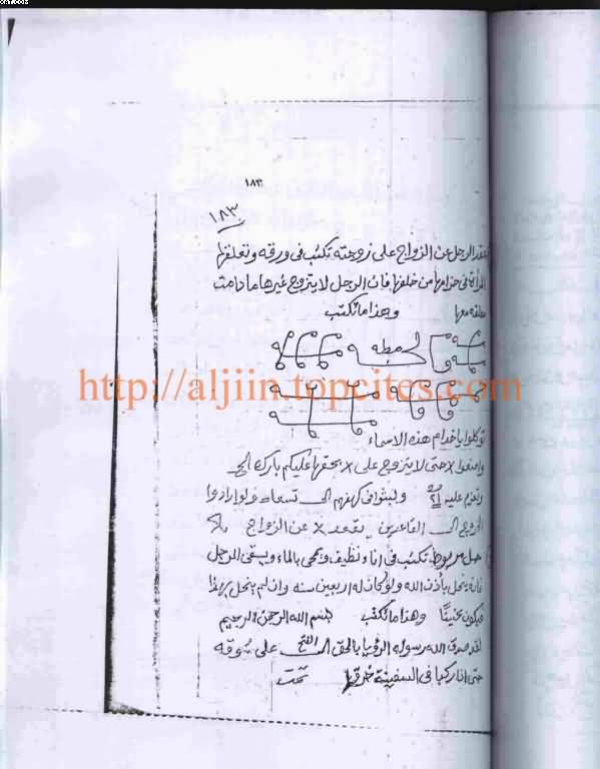 ١٨٣
١٨٣
عقد الرجل عن الزواج على زوجته تكتب فى ورقه وتعلقها
المرأة فى حزامها من خلفها فان الرجل لا يتزوج غيرها ما دامت
معلقه معها وهذا ما تكتب
http://aljiin.topcites.com
توكلوا يا خدام هذه الاسماء
وامنعوا × حتى لا يتزوج على × بحقها عليكم بارك الخ
وتعزم عليه ولبثوا فى كهفهم الى تسعا ولو ارادوا
الخروج الى القاعدين يقعد × عن الزواج
حل مربوط تكتب فى اناء نظيف ويمحى بالماء ويسقى للرجل
فانه ينحل بأذن الله ولو كان له اربعين سنه وان لم ينحل بهذا
فيكون عنينًا وهذا ما تكتب بسم الله الرحمن الرحيم
لقد صدق الله رسوله الرؤيا بالحق الى على سوقه
حتى اذا ركبا فى السفينة خرقها تمت